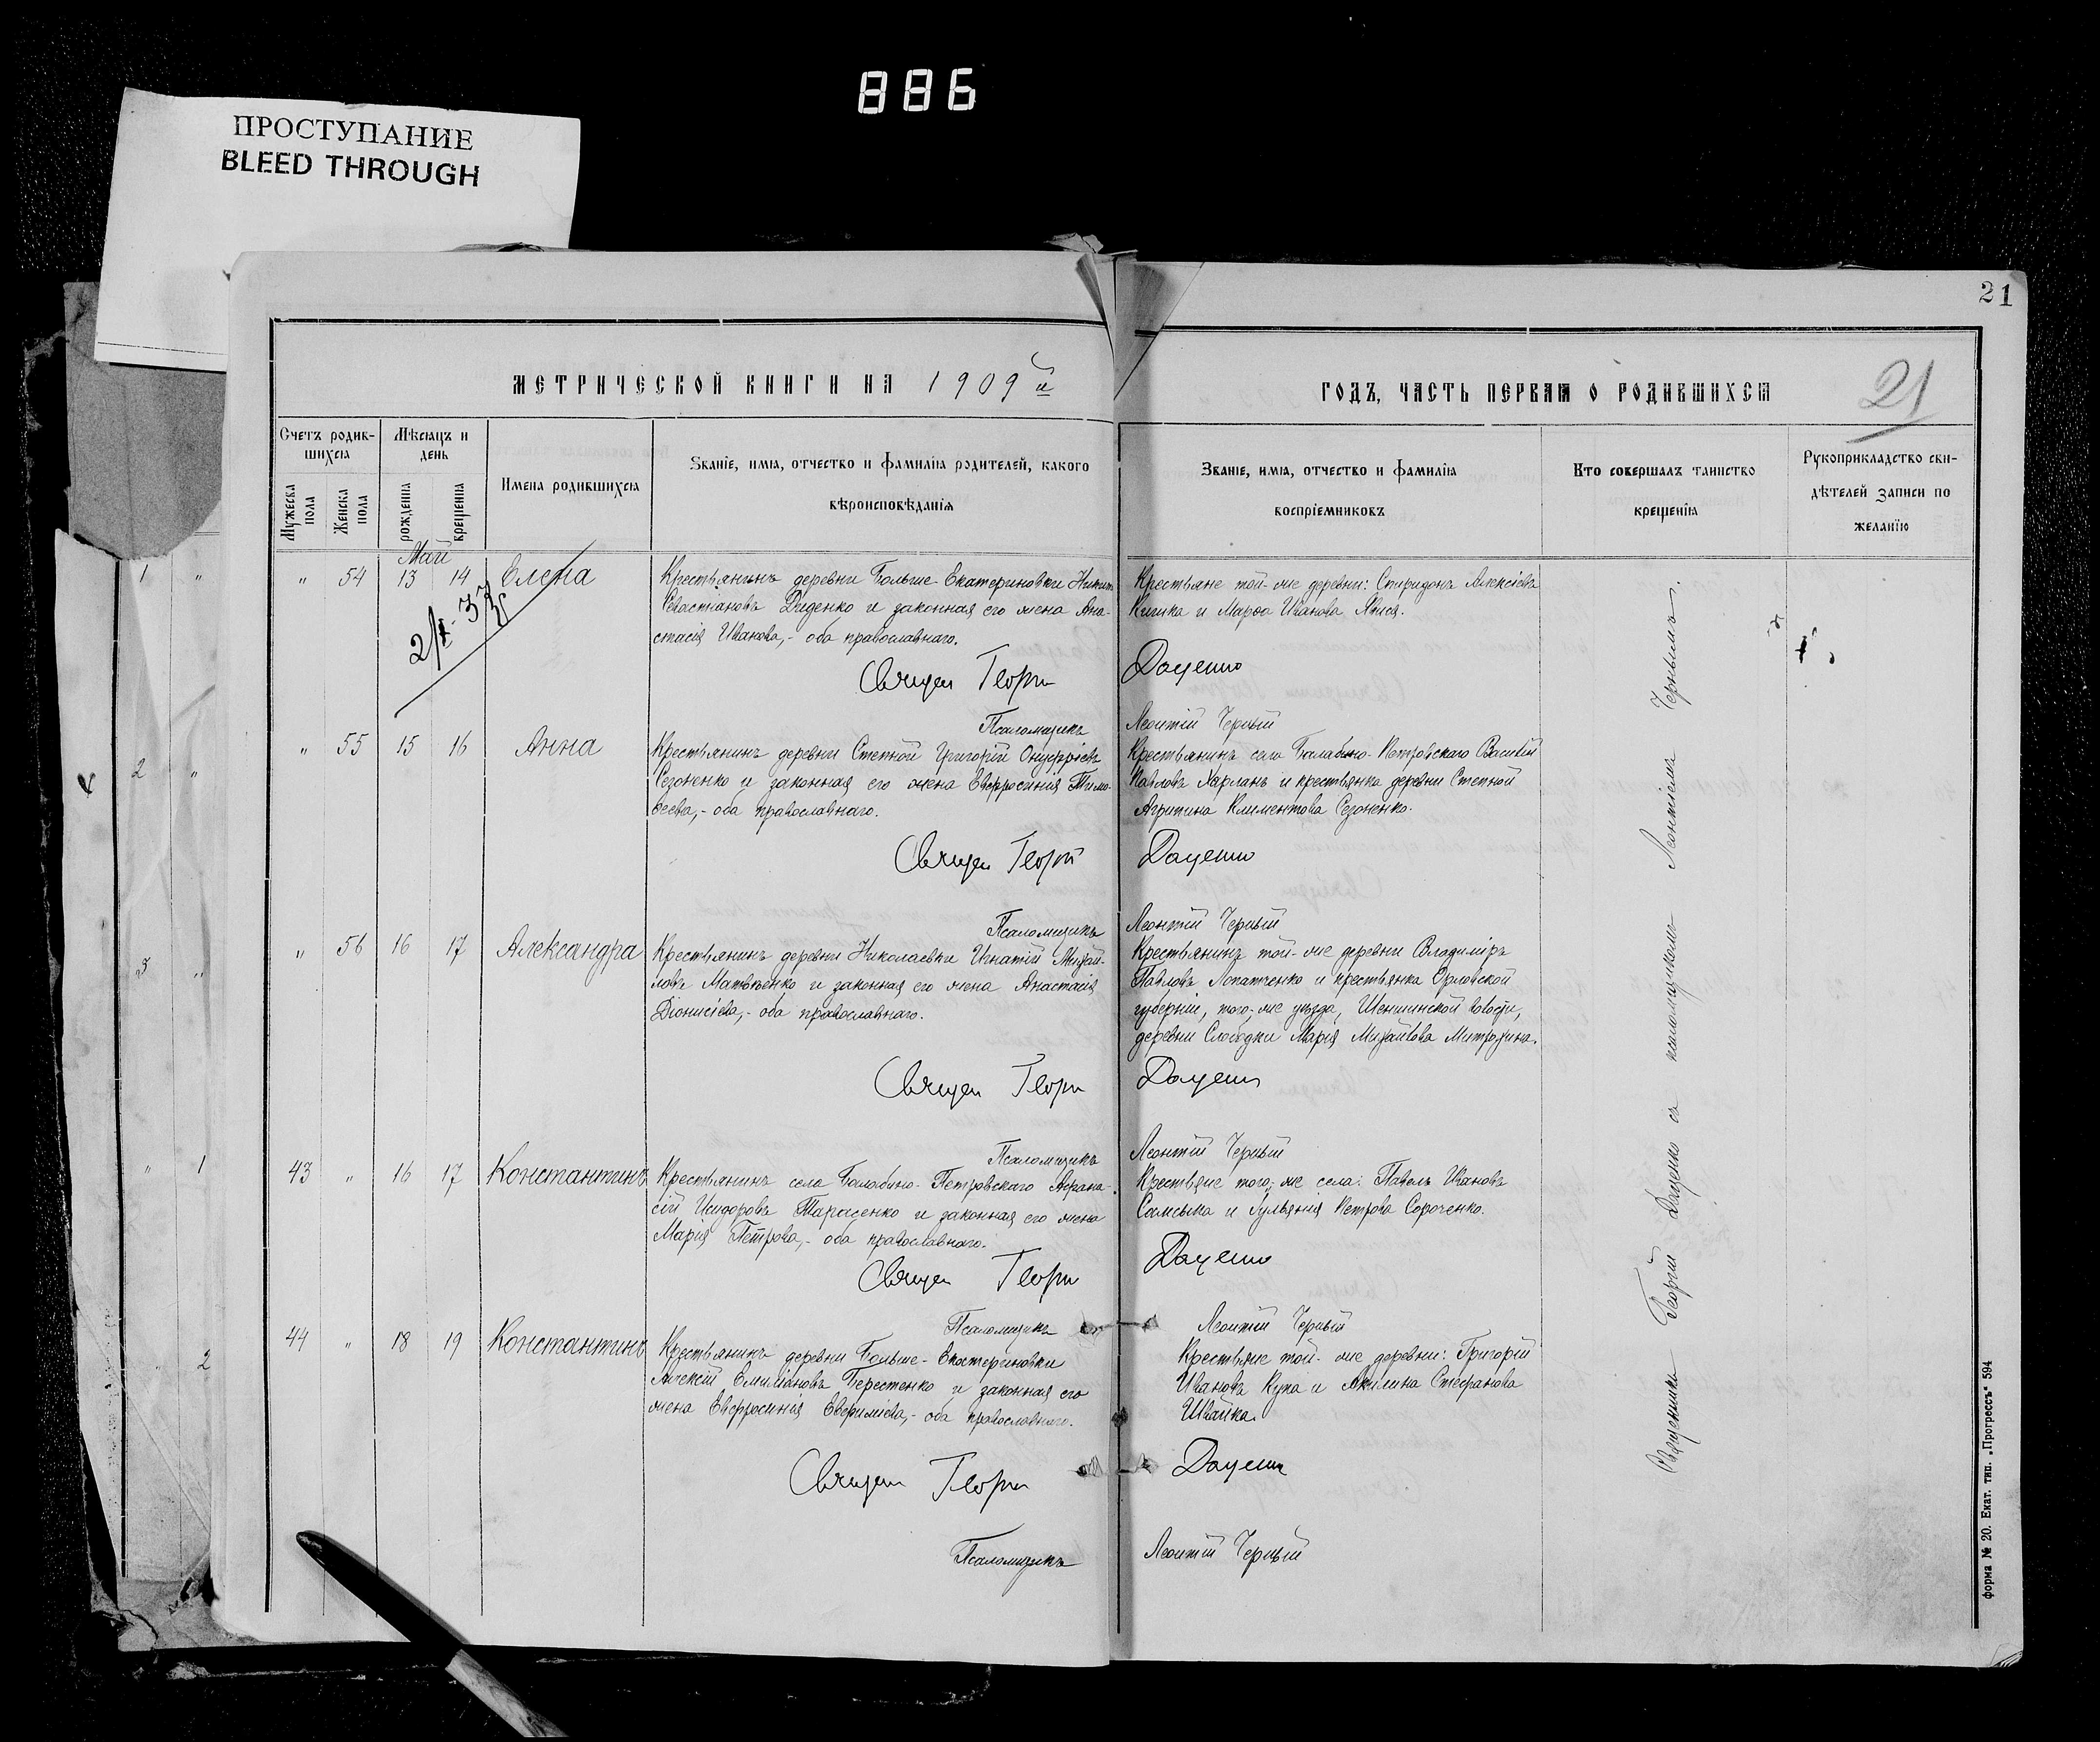 886
ПРОСТУПАНИЕ
BLEED THROUGH
21
МЕТРИЧЕСКОЙ КНИГИ НА 1909й
ГОДЪ, ЧАСТЬ ПЕРВАЯ О РОДИВШИХСЯ
21
Счетъ родив-
шихся
Мужеска пола
Женска пола
Мѣсяцъ и
день
рожденія
крещенія
Имена родившихся
Званіе, имя, отчество и фамилія родителей, какого
вѣроисповѣданія
Званіе, имя, отчество и фамилія
воспріемниковъ
Кто совершалъ таинство
крещенія
Рукоприкладство сви-
дѣтелей записи по
желанію
Май
" 54 13 14 Елена
Крестьянинъ деревни Больше-Екатериновки Никита
Севастіановъ Диденко и законная его жена Ана-
стасія Иванова,- оба православнаго.
Крестьяне той-же деревни: Спиридонъ Алексіевъ
Кишка и Марѳа Иванова
Священ Георгій Даценко
Псаломщикъ Леонтій Черный
" 55 15 16 Анна
Крестьянинъ деревни Степной Григорій Онуфріевъ
Сезоненко и законная его жена Евфросинія Тимо-
ѳеева,- оба православнаго.
Крестьянинъ села Балабино-Петровскаго Василій
Павловъ и крестьянка деревни Степной
Агрипина Климентова Сезоненко.
Священ Георгій Даценко
Псаломщикъ Леонтій Черный
" 56 16 17 Александра
Крестьянинъ деревни Николаевки Игнатій Михай-
ловъ Матвѣенко и законная его жена Анастасія
Діонисіева,- оба православнаго.
Крестьянинъ той-же деревни Владиміръ
Павловъ Лопатченко и крестьянка Орловской
губерніи, того-же уѣзда, волости,
деревни Слободки Марія Михайлова Митрохина.
Священ Георгій Даценко
Псаломщикъ Леонтій Черный
43 " 16 17 Константинъ
Крестьянинъ села Балабино-Петровскаго Афана-
сій Исидоровъ Тарасенко и законная его жена
Марія Петрова,- оба православнаго.
Крестьяне того-же села: Павелъ Ивановъ
и Іуліанія Петрова Сороченко.
Священ Георгій Даценко
Псаломщикъ Леонтій Черный
44 " 18 19 Константинъ
Крестьянинъ деревни Больше-Екатериновки
Алексій Емиліановъ Берестенко и законная его
жена Евфросинія Евфиміева,- оба православнаго.
Крестьяне той-же деревни: Григорій
Ивановъ Кука и Акилина Стефанова
Швайка.
Священ Георгій Даценко
Псаломщикъ Леонтій Черный
Священникъ Георгій Даценко съ псаломщикомъ Леонтіемъ Чернымъ.
форма № 20. Екат. тип. „Прогрессъ“ 594